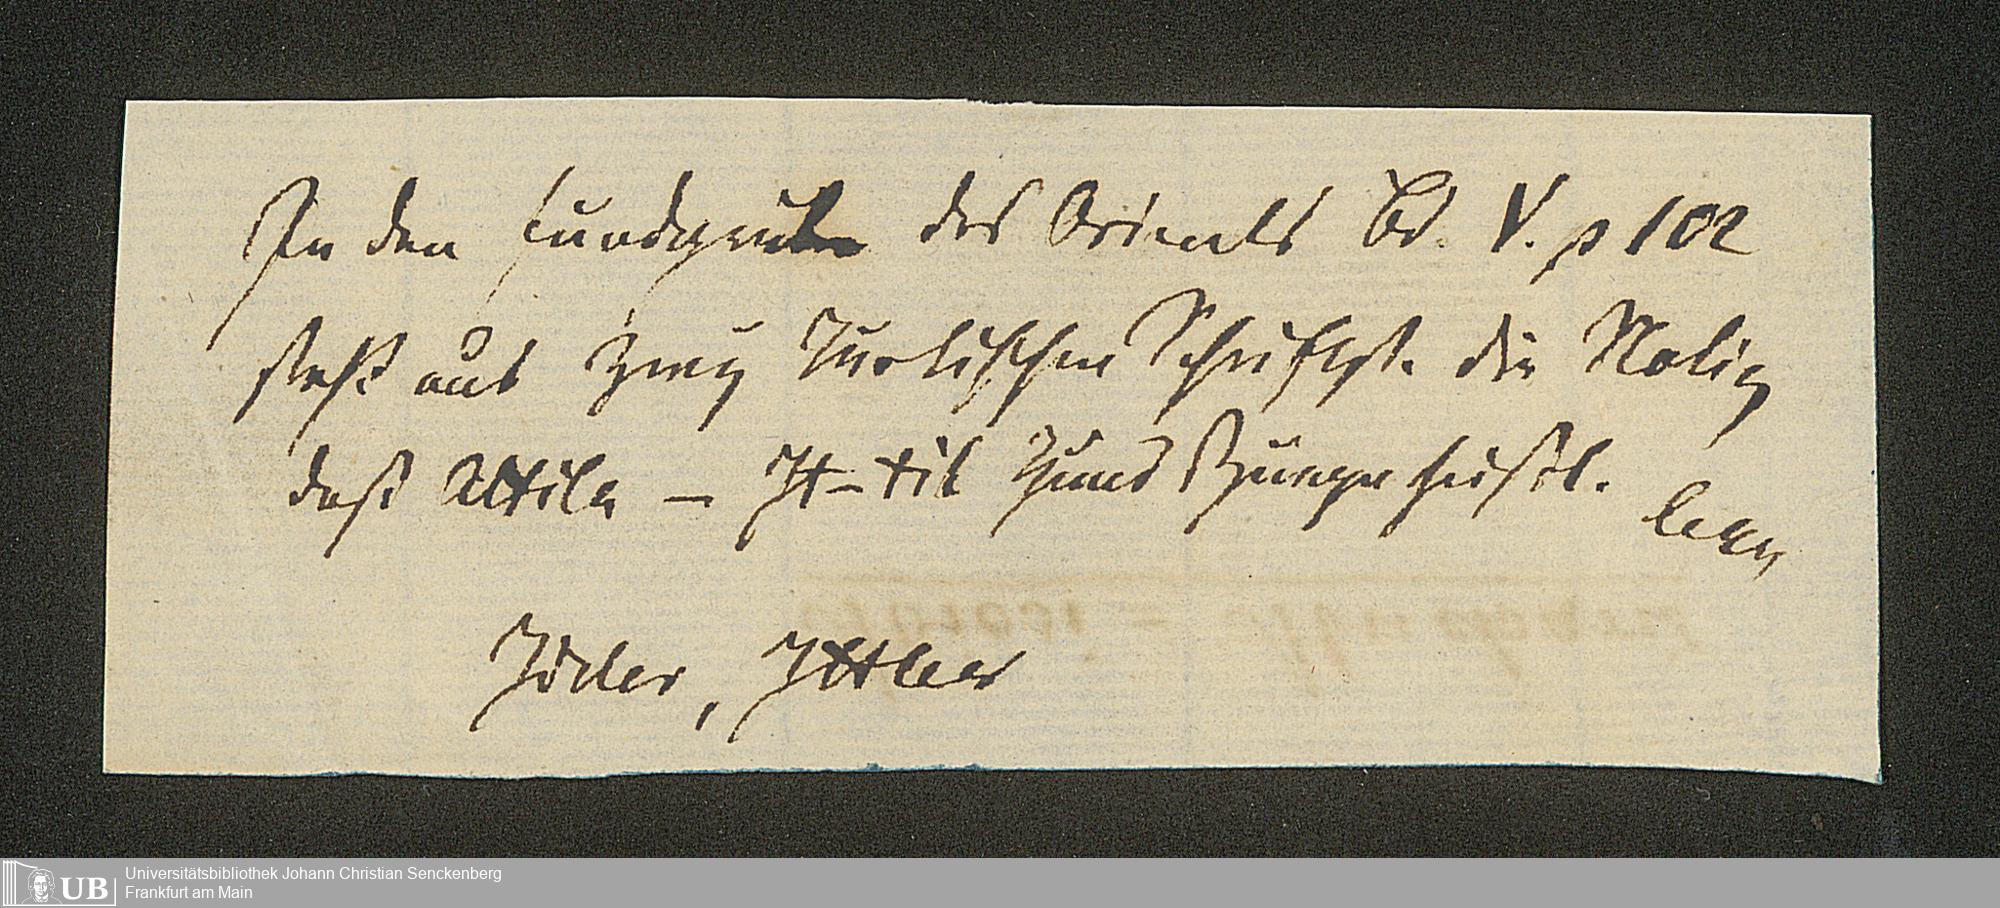 In den Fundgruben des Orients Bd. V. p 102
steht aus zwey Türkischen Schriftst. die Notiz
daß Attila — It-til Hunds Zunge heißt.
Idler, Ittler
Universitätsbibliothek Johann Christian Senckenberg
Frankfurt am Main
UB